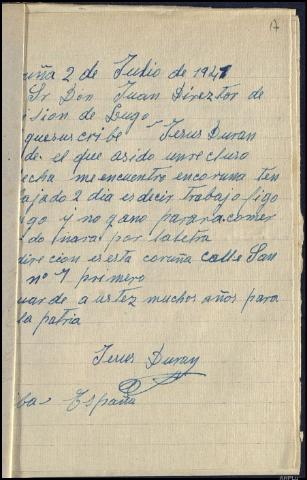 A
uña 2 de Julio de 1941
Sr Don Juan Direztor de
ision de Lugo
quesuscribe Jesus Duran
de el que asido unrecluso
echa me encuentro encoruna ten
ajado 2 dia es decir trabajo figo
igo y no gano pararacomer
do
por laletra
direcion es esta coruña calle San
nº 7 primero
uar de a ustez muchos años para
la patria
Jesus Duran
iba España